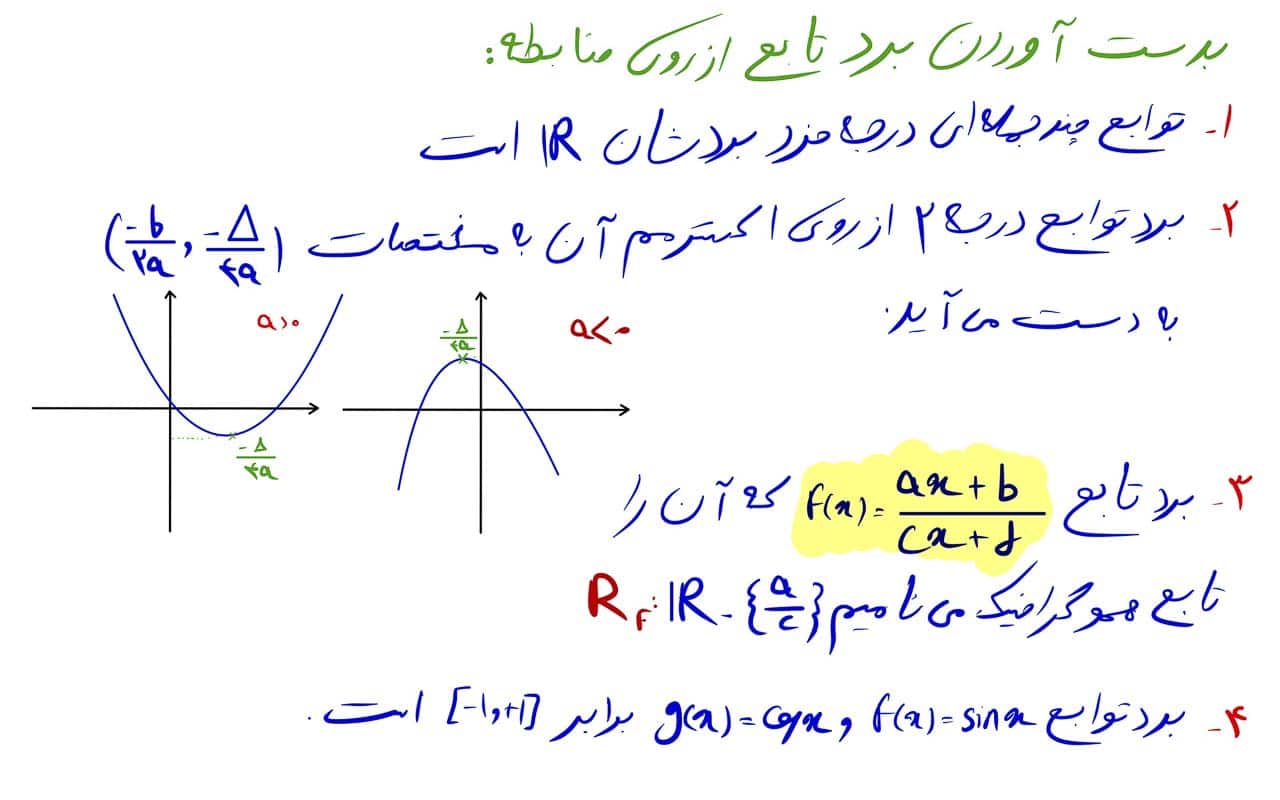 بدست آوردن برد تابع از روی ضابطه:
۱- توابع چندجمله‌ای درجه فرد بردشان ℝ است
۲- برد توابع درجه ۲ از روی اکسترمم آن به مختصات (-b/۲a , -Δ/۴a)
به دست می‌آید.
a>۰
-Δ/۴a
a<۰
-Δ/۴a
۳- برد تابع f(x)= ax+b/cx+d که آن را
تابع هموگرافیک می‌نامیم R_f: ℝ-{a/c}
۴- برد توابع f(x)=sinx و g(x)=cosx برابر [-۱,+۱] است.